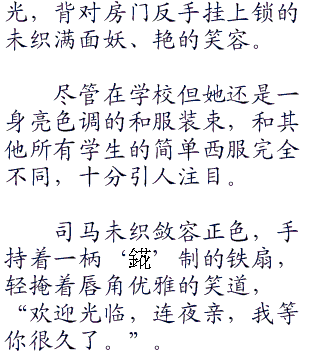 光，背对房门反手挂上锁的
未织满面妖、艳的笑容。
尽管在学校但她还是一
身亮色调的和服装束，和其
他所有学生的简单西服完全
不同，十分引人注目。
司马未织敛容正色，手
持着一柄‘錵’制的铁扇，
轻掩着唇角优雅的笑道，
“欢迎光临，连夜亲，我等
你很久了。”。